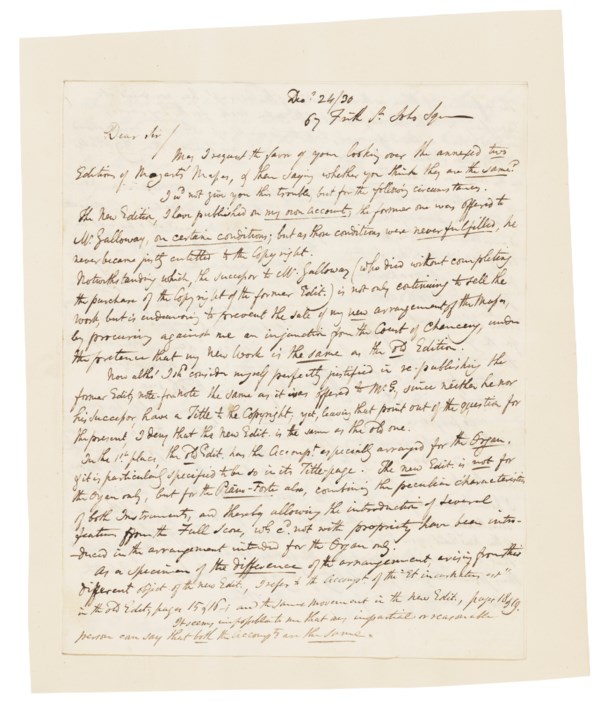 Decr. 24/30
67 Frith St. Soho Sqre
Dear Sir/
May I request the favor of your looking over the annexed two
Editions of Mozarts' Masses, & then saying whether you think they are the same?
I wd. not give you this trouble, but for the following circumstances.
The New Edition, I have published on my own account, the former one was offered to
Mr. Galloway, on certain conditions; but as those conditions were never fulfilled, he
never became justly entitled to the Copyright.
Notwithstanding which, the successor to Mr. Galloway (who died without completing
the purchase of the Copyright of the former Edit:) is not only continuing to sell the
work, but is endeavoring to prevent the sale of my new arrangement of the Masses,
by procuring against me an injunction from the Court of Chancery, under
the pretence that my new work is the same as the Old Edition.
Now altho' I shd. consider myself perfectly justified in re-publishing the
former Edit: note-for-note the same as it was offered to Mr. G, since neither he nor
his successor, have a Title to the Copyright, yet, leaving that point out of the question for
the present I deny that the New Edit: is the same as the Old one.
In the 1st. place, the Old Edit: has the Accompt. especially arranged for the Organ,
& it is particularly specified to be so in its Title page. The new Edit: is not for
the Organ only, but for the Piano-Forte also, combining the peculiar characteristics
of both Instruments, and thereby allowing the introduction of several
features from the Full Score, wh: cd. not with propriety have been intro-
-duced in the arrangement intended for the Organ only.
As a specimen of the difference of the arrangement, arising from this
different object of the new Edit:, I refer to the Accompt. of the "Et incarnatus est"
in the Old Edit:, pages 15 & 16, and the same movement in the new Edit:, pages 18 & 19.
It seems impossible to me that any impartial or reasonable
person can say that both the Accompts. are the same.